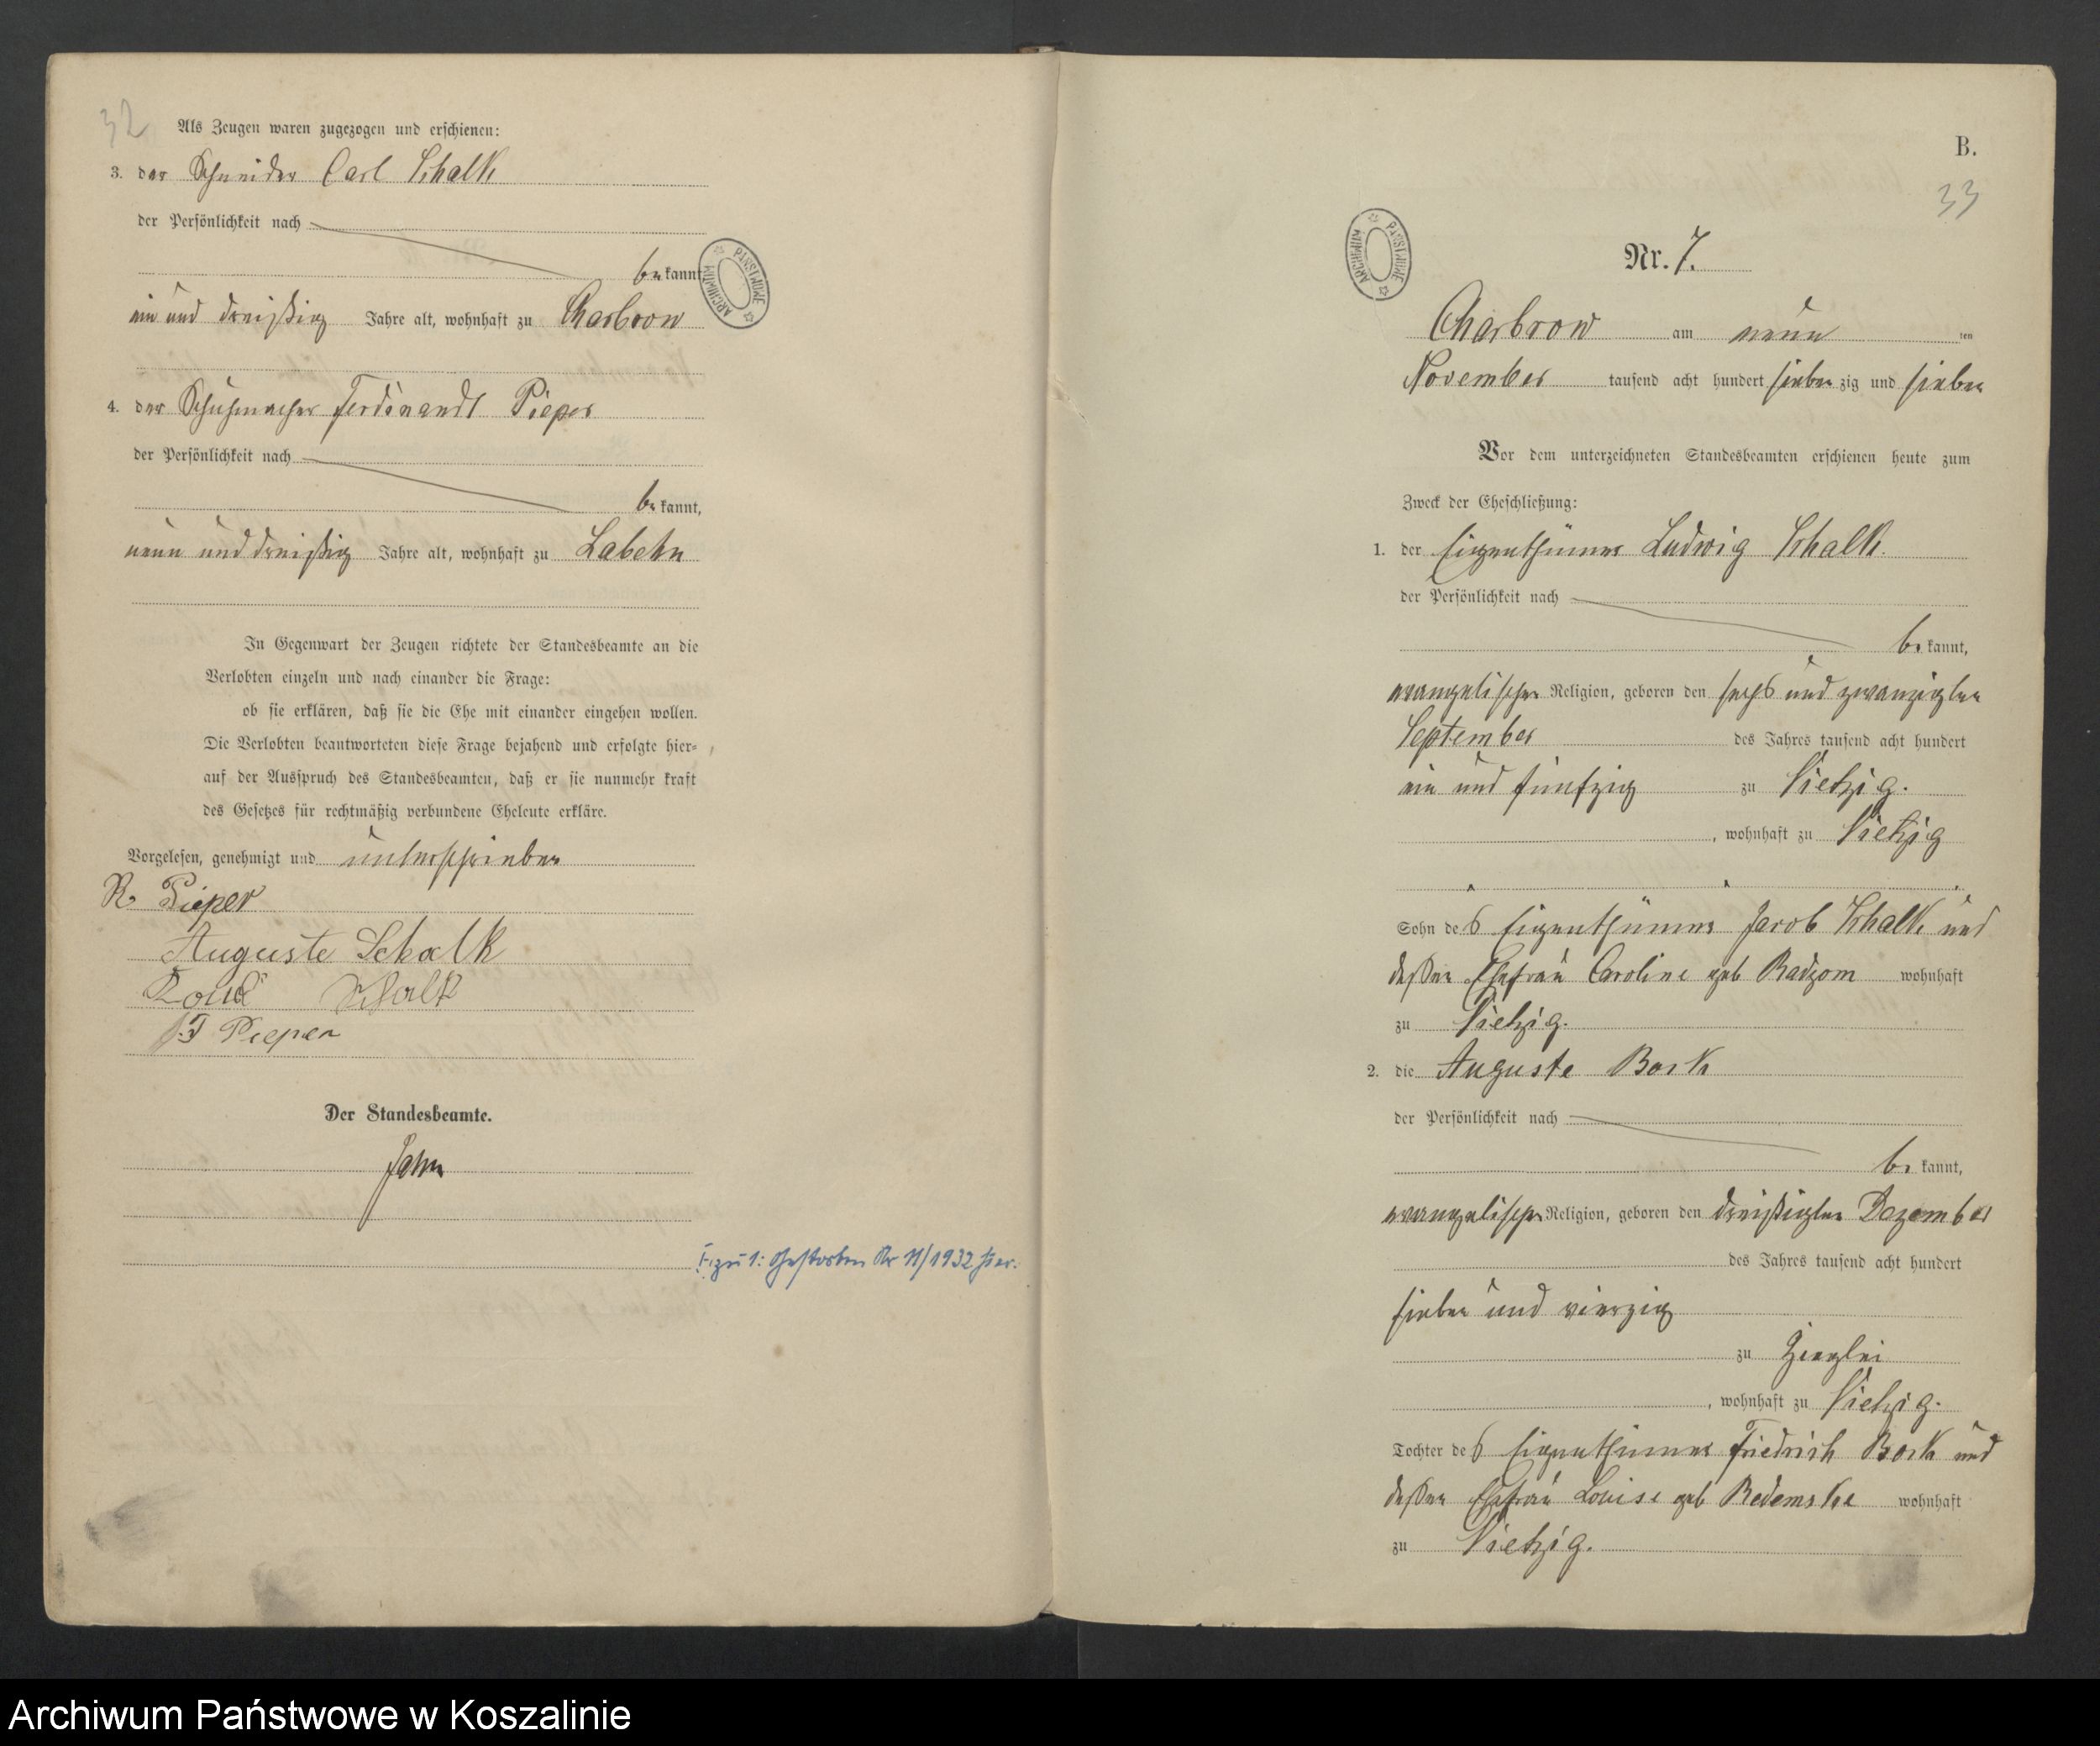 32
Als Zeugen waren zugezogen und erschienen:
3. der Schneider Carl Schalk
der Persönlichkeit nach
be kannt,
ein und dreißig Jahre alt, wohnhaft zu Charbrow
4. der Schuhmacher Ferdinandt Pieper
der Persönlichkeit nach
be kannt,
neun und dreißig Jahre alt, wohnhaft zu Labehn
In Gegenwart der Zeugen richtete der Standesbeamte an die
Verlobten einzeln und nach einander die Frage:
ob sie erklären, daß sie die Ehe mit einander eingehen wollen.
Die Verlobten beantworteten diese Frage bejahend und erfolgte hier-
auf der Ausspruch des Standesbeamten, daß er sie nunmehr kraft
des Gesetzes für rechtmäßig verbundene Eheleute erkläre.
Vorgelesen, genehmigt und unterschrieben
R. Pieper
Auguste Schalk
Schalk
F Pieper
Der Standesbeamte.
Jahn
zu 1: Gestorben Nr 11/1932 hier.
ARCHIWUM PAŃSTWOWE
B.
33
ARCHIWUM PAŃSTWOWE
Nr. 7.
Charbrow am neun ten
November tausend acht hundert sieben zig und sieben
Vor dem unterzeichneten Standesbeamten erschienen heute zum
Zweck der Eheschließung:
1. der Eigenthümer Ludwig Schalk
der Persönlichkeit nach
be kannt,
evangelischer Religion, geboren den sechs und zwanzigsten
September des Jahres tausend acht hundert
ein und fünfzig zu Vietzig.
, wohnhaft zu Vietzig
Sohn des Eigenthümers Jacob Schalk und
deßen Ehefrau Caroline geb Radzom wohnhaft
zu Vietzig.
2. die Auguste Bork
der Persönlichkeit nach
be kannt,
evangelischer Religion, geboren den dreißigsten Dezember
des Jahres tausend acht hundert
sieben und vierzig
zu
, wohnhaft zu Vietzig.
Tochter des Eigenthümers Friedrich Bork und
deßen Ehefrau Louise geb Redemske wohnhaft
zu Vietzig.
Archiwum Państwowe w Koszalinie